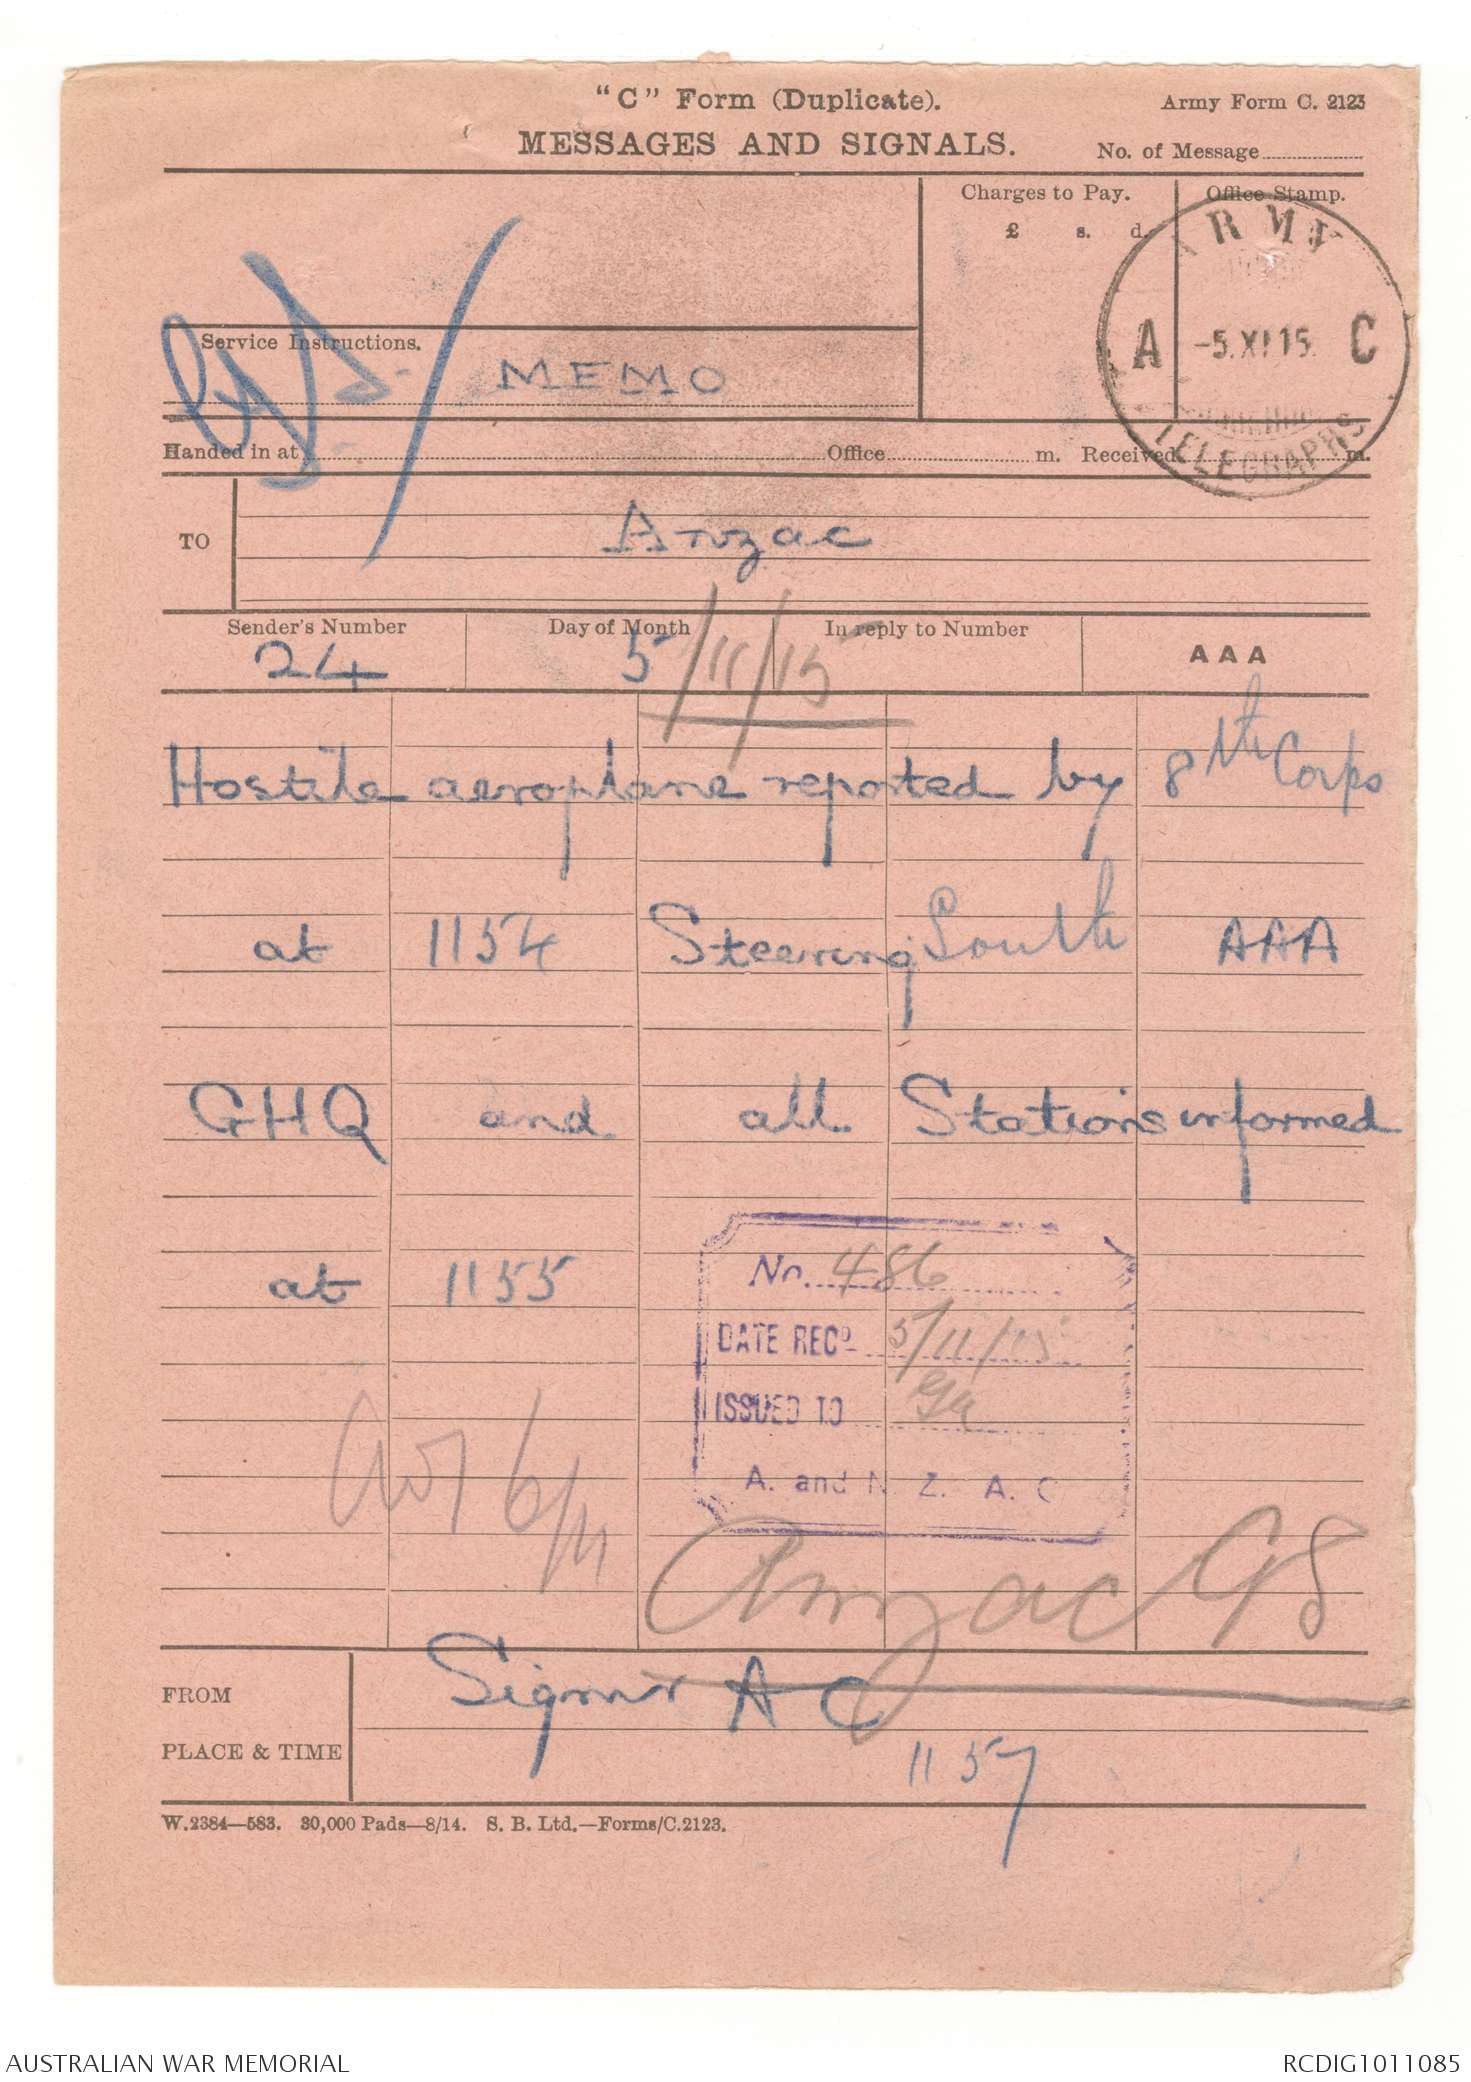 "C" Form (Duplicate).
Army Form C. 2123
MESSAGES AND SIGNALS.
No. of Message
Charges to Pay.
£ s. d.
Office Stamp.
ARMY
A -5.XI.15. C
TELEGRAPHS
Service Instructions.
MEMO
Handed in at Office m. Received m.
TO
Anzac
Sender's Number
Day of Month
In reply to Number
AAA
24
5/11/15
Hostile aeroplane reported by 8th Corps
at 1154 Steering South AAA
GHQ and all Stations informed
at 1155
No. 486
DATE RECD 5/11/15
ISSUED TO
A. and N. Z. A. C
6/11
Anzac GS
FROM
A C
PLACE & TIME
1157
W.2384—583. 30,000 Pads—8/14. S. B. Ltd.—Forms/C.2123.
AUSTRALIAN WAR MEMORIAL
RCDIG1011085